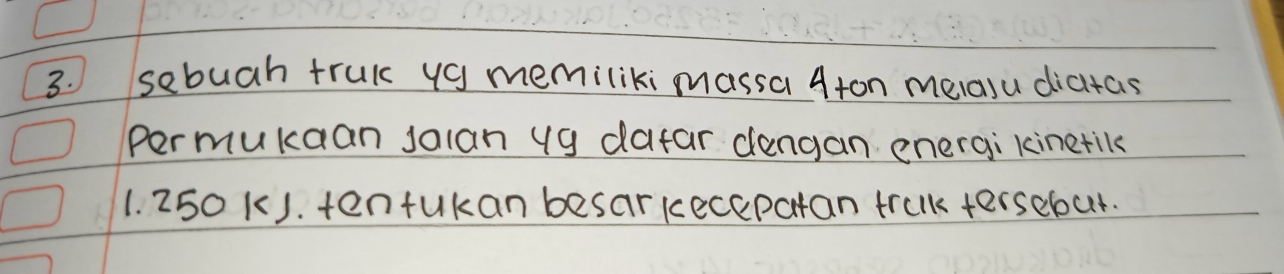 3. sebuah truk yg memiliki massa 4 ton melaju diatas
Permukaan jalan yg datar dengan energi kinetik
1.250 KJ. tentukan besar kecepatan truk tersebut.